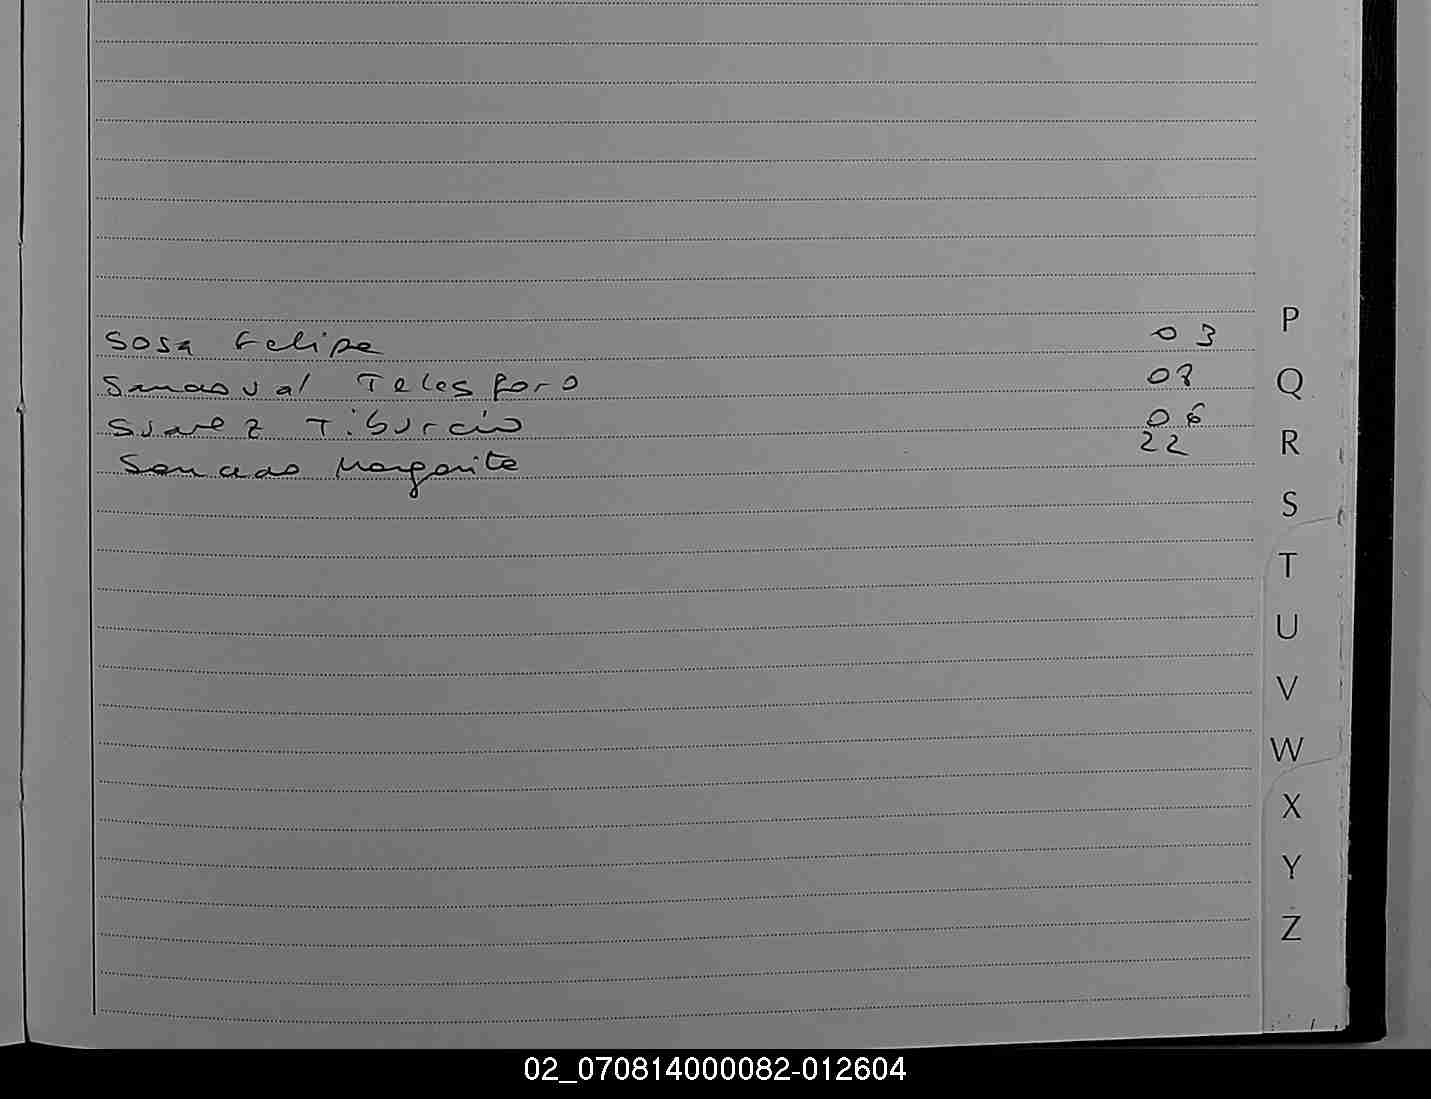 Sosa Felipe 03
Sandoval Telesforo 07
Suarez Tiburcio 06
Margarita 22
P
Q
R
S
T
U
V
W
X
Y
Z
02_070814000082-012604